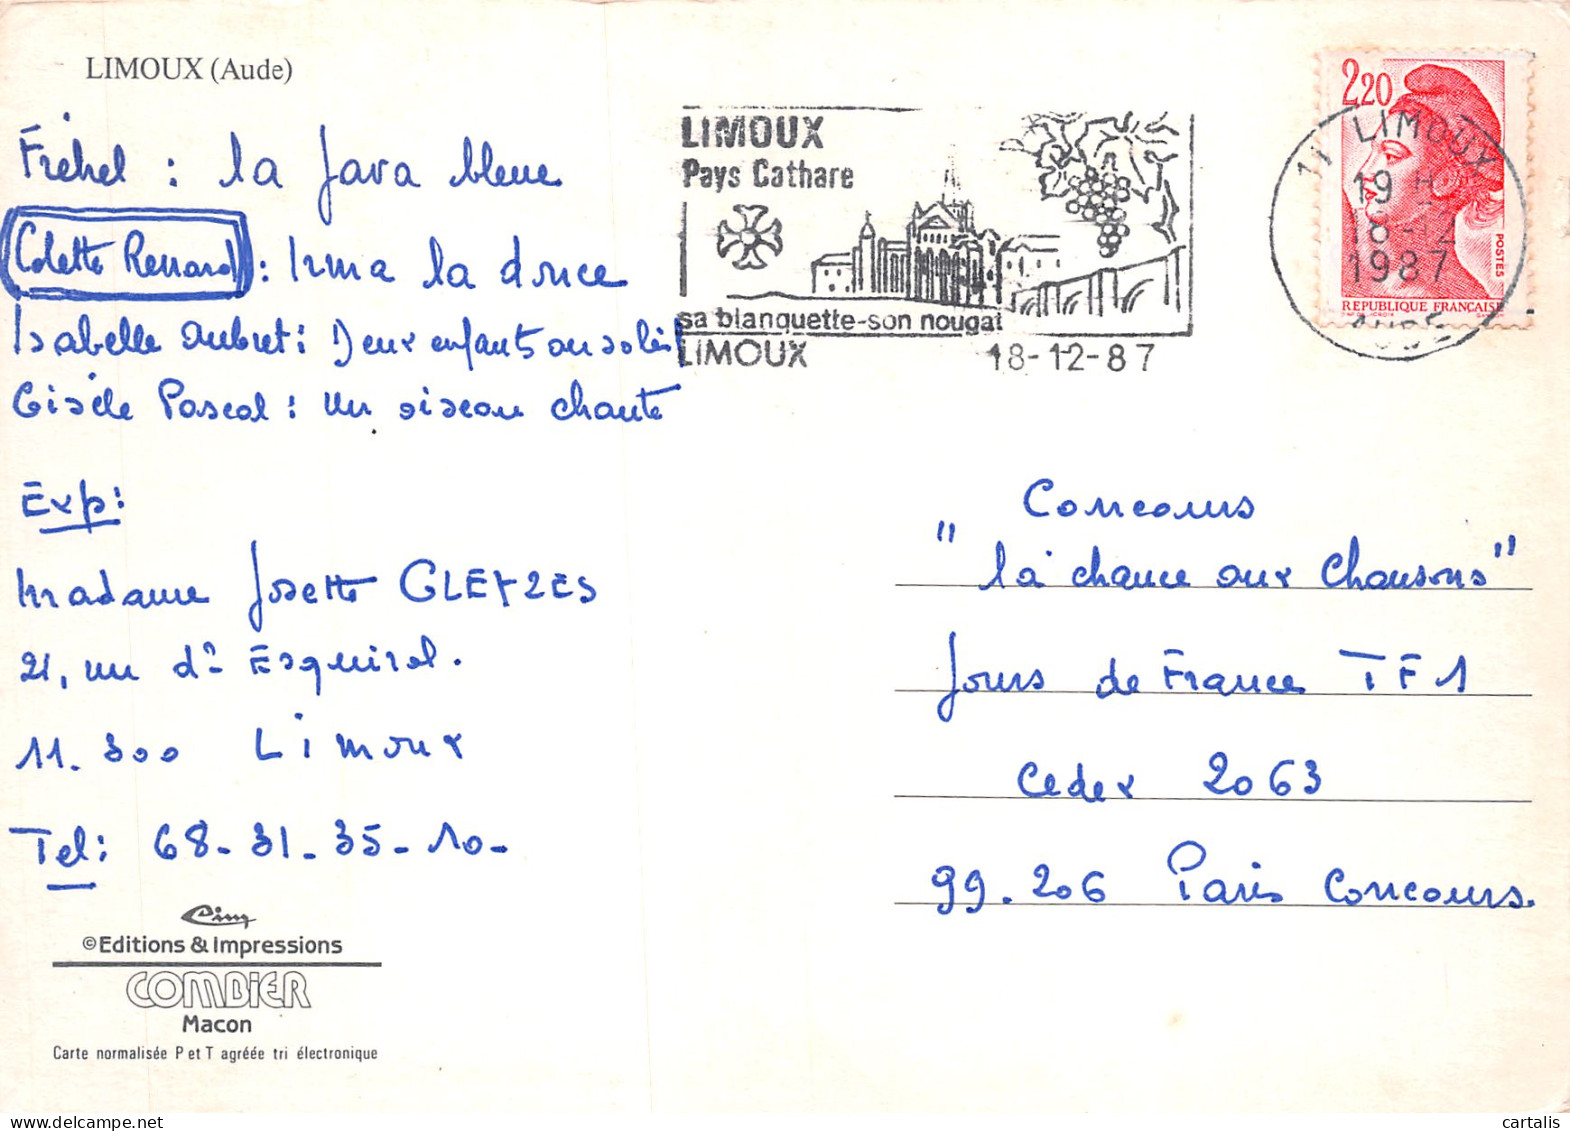 LIMOUX (Aude)
Frehel : la Java bleue
Colette Renard : Irma la douce
Isabelle Aubret : Deux enfants au soleil
Gisèle Pascal : Un oiseau chante
Exp:
Madame Josette GLEYZES
21, rue d' Esquirol.
11.300 Limoux
Tel: 68-31-35-10-
Cim
©Editions & Impressions
COMBIER
Macon
Carte normalisée P et T agréée tri électronique
LIMOUX
Pays Cathare
sa blanquette-son nougat
LIMOUX 18-12-87
2,20
POSTES
REPUBLIQUE FRANCAISE
11 LIMOUX
19 H
18-12
1987
AUDE
Concours
"la chance aux Chansons"
Jours de France TF1
Cedex 2063
99.206 Paris Concours.
cartalis